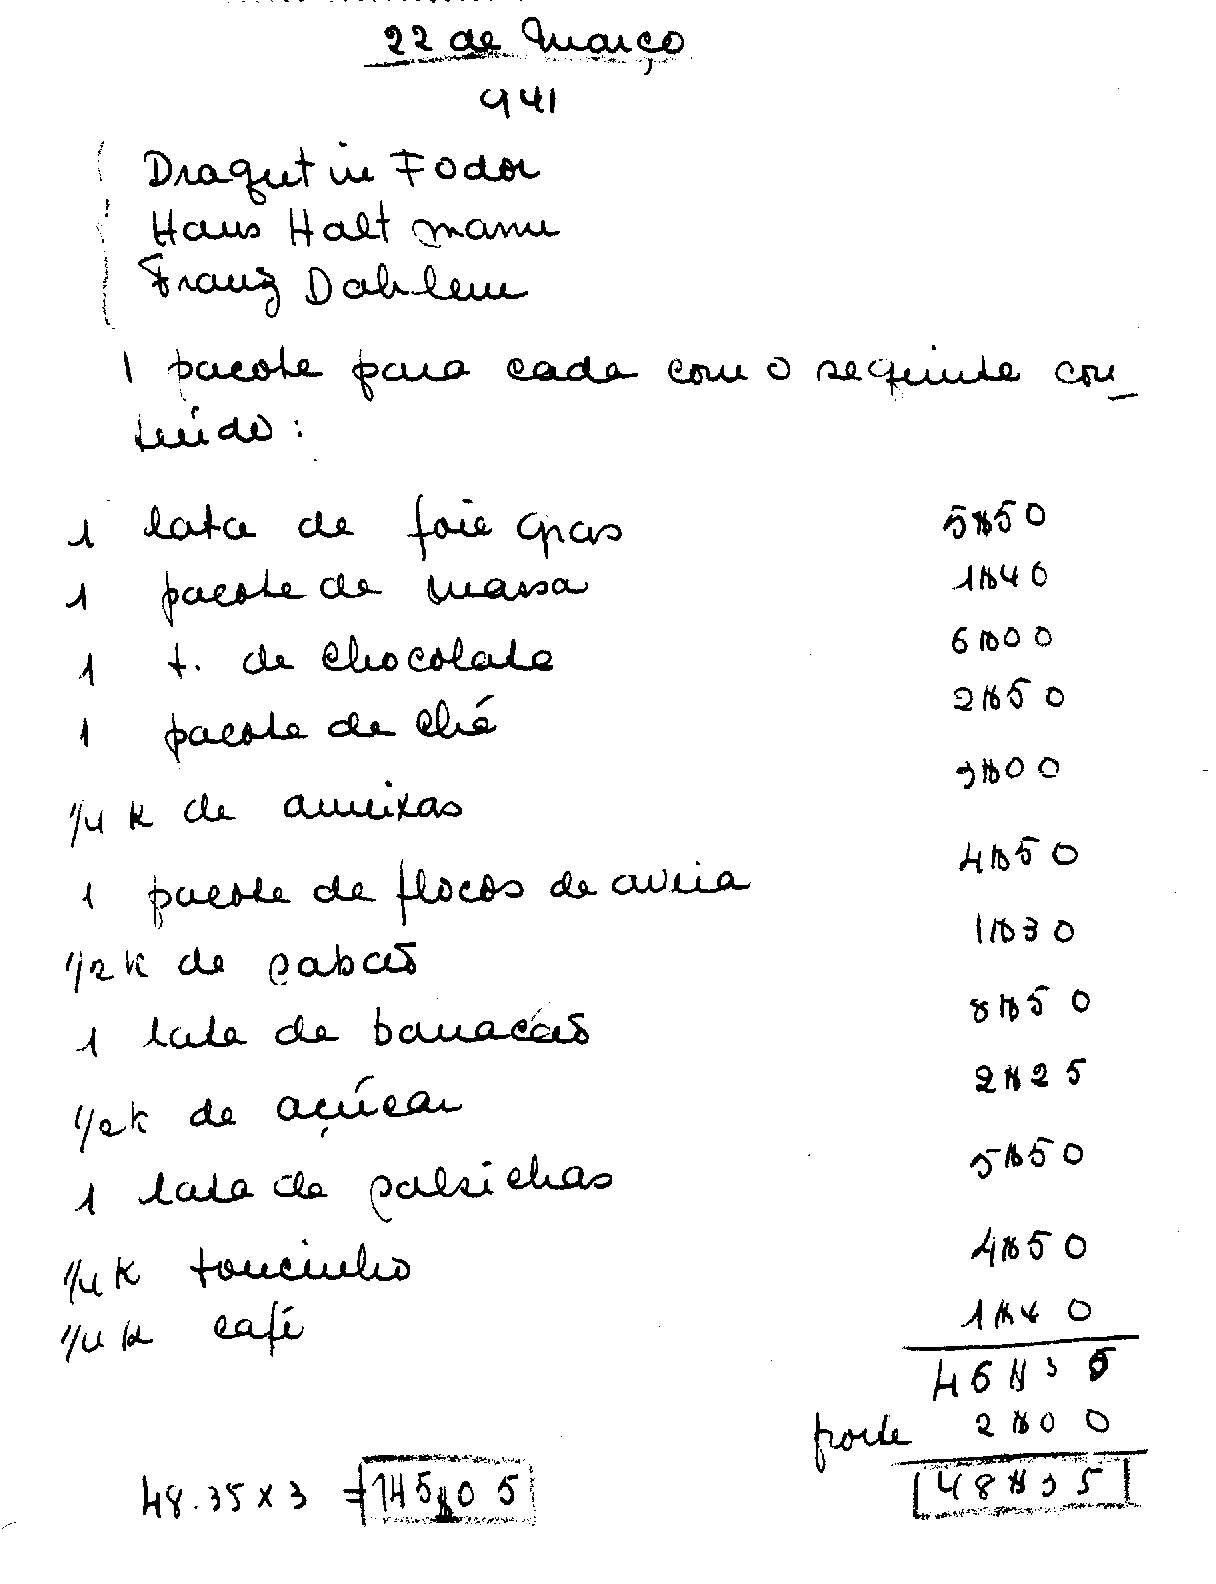 22 de Março
941
Dragutin Fodor
Hans Haltmann
Franz Dahlem
1 pacote para cada com o seguinte con_
teúdo:
1 lata de foie gras 5$50
1 pacote de massa 1$40
1 t. de chocolate 6$00
1 pacote de chá 2$50
1/4 k de ameixas 3$00
1 pacote de flocos de aveia 4$50
1/2 k de sabão 1$30
1 lata de 8$50
1/2 k de açúcar 2$25
1 lata de salsichas 5$50
1/4 k toucinho 4$50
1/4 k café 1$40
46$35
porte 2$00
48.35 x 3 = 145$05 48$35